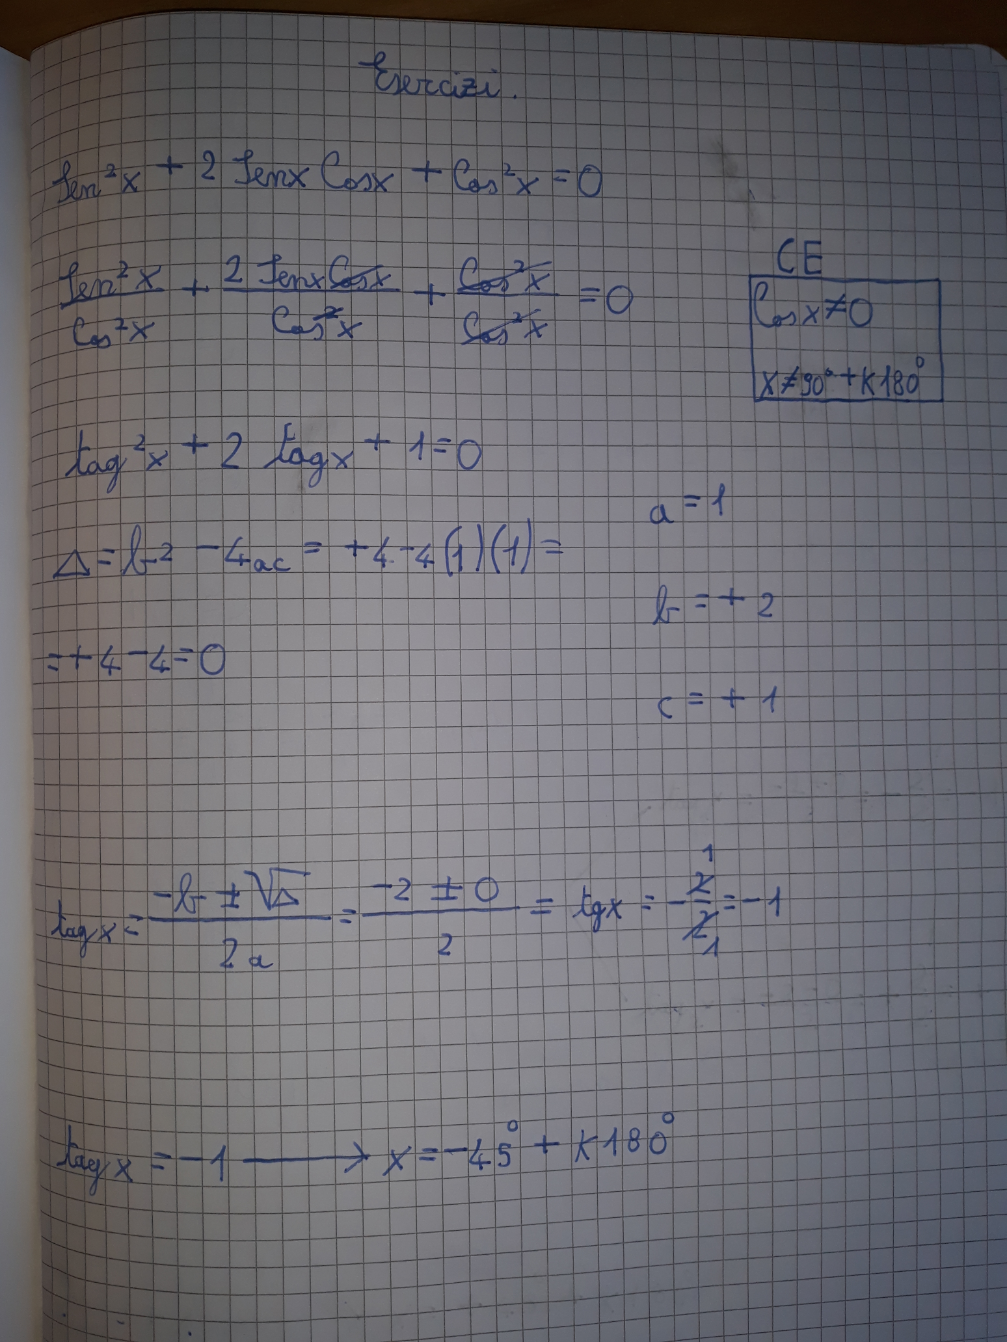 Esercizi.
Sen²x + 2 Senx Cosx + Cos²x = 0
Sen²x/Cos²x + 2 Senx Cosx/Cos²x + Cos²x/Cos²x = 0
CE
Cosx ≠ 0
x ≠ 90° + K180°
tag²x + 2 tagx + 1 = 0
a = 1
Δ = b² - 4ac = +4 - 4(1)(1) =
b = + 2
= + 4 - 4 = 0
c = + 1
tagx = -b ± √Δ/2a = -2 ± 0/2 = tgx = - 2/2 = -1
1
1
tagx = -1 → x = -45° + K180°